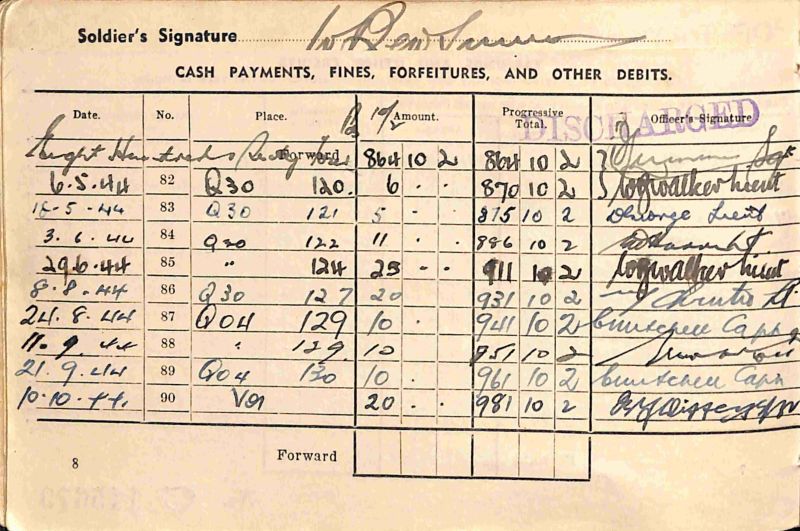 Soldier's Signature
CASH PAYMENTS, FINES, FORFEITURES, AND OTHER DEBITS.
Date. No. Place. Amount. Progressive Total. Officer's Signature
DISCHARGED
10/2
Eight Hundred & Forward 864 10 2 864 10 2
6.5.44 82 Q30 120. 6 . . 870 10 2 Walker Lieut
18.5.44 83 Q30 121 5 . . 875 10 2 George Lieut
3.6.44 84 Q30 122 11 . . 886 10 2
29.6.44 85 " 124 25 . . 911 10 2 Walker Lieut
8.8.44 86 Q30 127 20 . . 931 10 2
24.8.44 87 Q04 129 10 . . 941 10 2 Capt
11.9.44 88 " 129 10 . . 951 10 2
21.9.44 89 Q04 130 10 . . 961 10 2 Capt
10.10.44. 90 20 . . 981 10 2
Forward
8